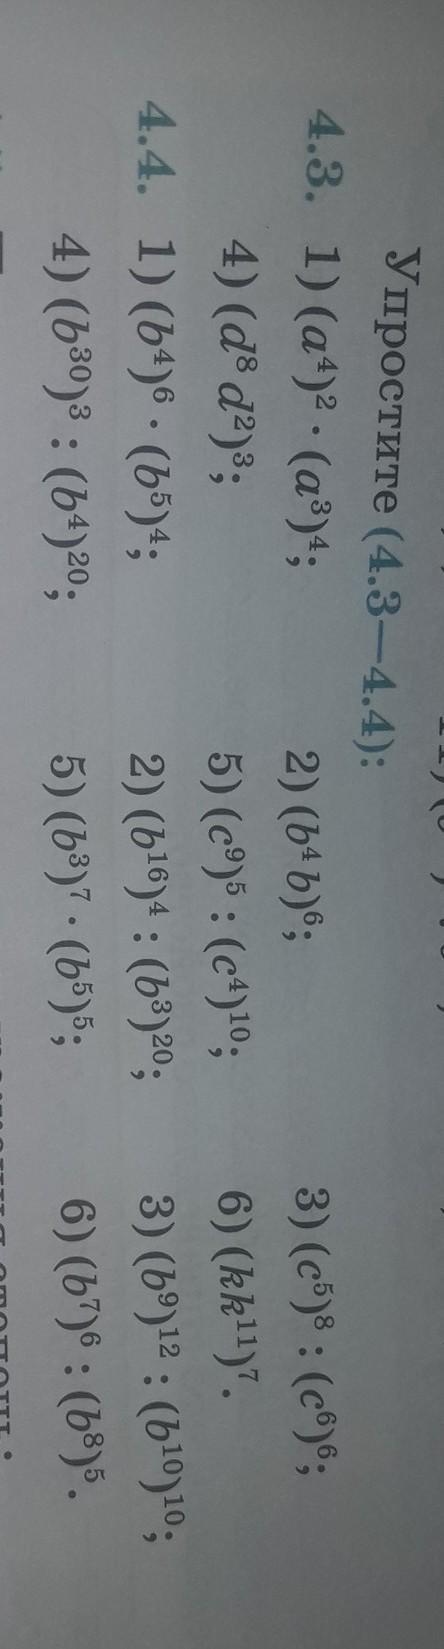 Упростите (4.3—4.4):
4.3. 1) (a⁴)² · (a³)⁴; 2) (b⁴ b)⁶; 3) (c⁵)⁸ : (c⁶)⁶;
4) (d⁸ d²)³; 5) (c⁹)⁵ : (c⁴)¹⁰; 6) (kk¹¹)⁷.
4.4. 1) (b⁴)⁶ · (b⁵)⁴; 2) (b¹⁶)⁴ : (b³)²⁰; 3) (b⁹)¹² : (b¹⁰)¹⁰;
4) (b³⁰)³ : (b⁴)²⁰; 5) (b³)⁷ · (b⁵)⁵; 6) (b⁷)⁶ : (b⁸)⁵.